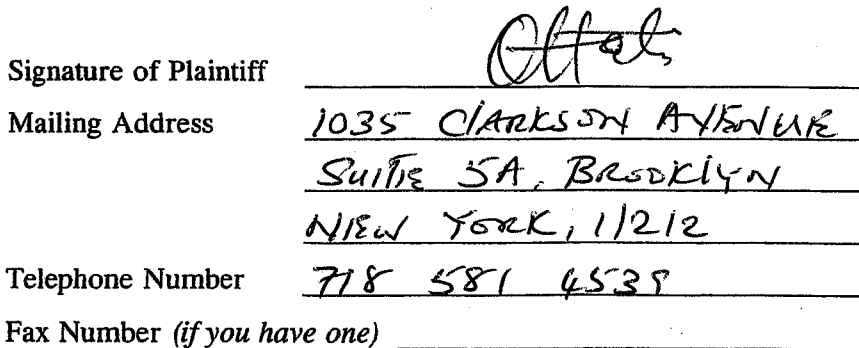 Signature of Plaintiff
Mailing Address 1035 ClARKSON AVENUE
SUITE 5A, BROOKlYN
NEW YORK, 11212
Telephone Number 718 581 4539
Fax Number (if you have one)